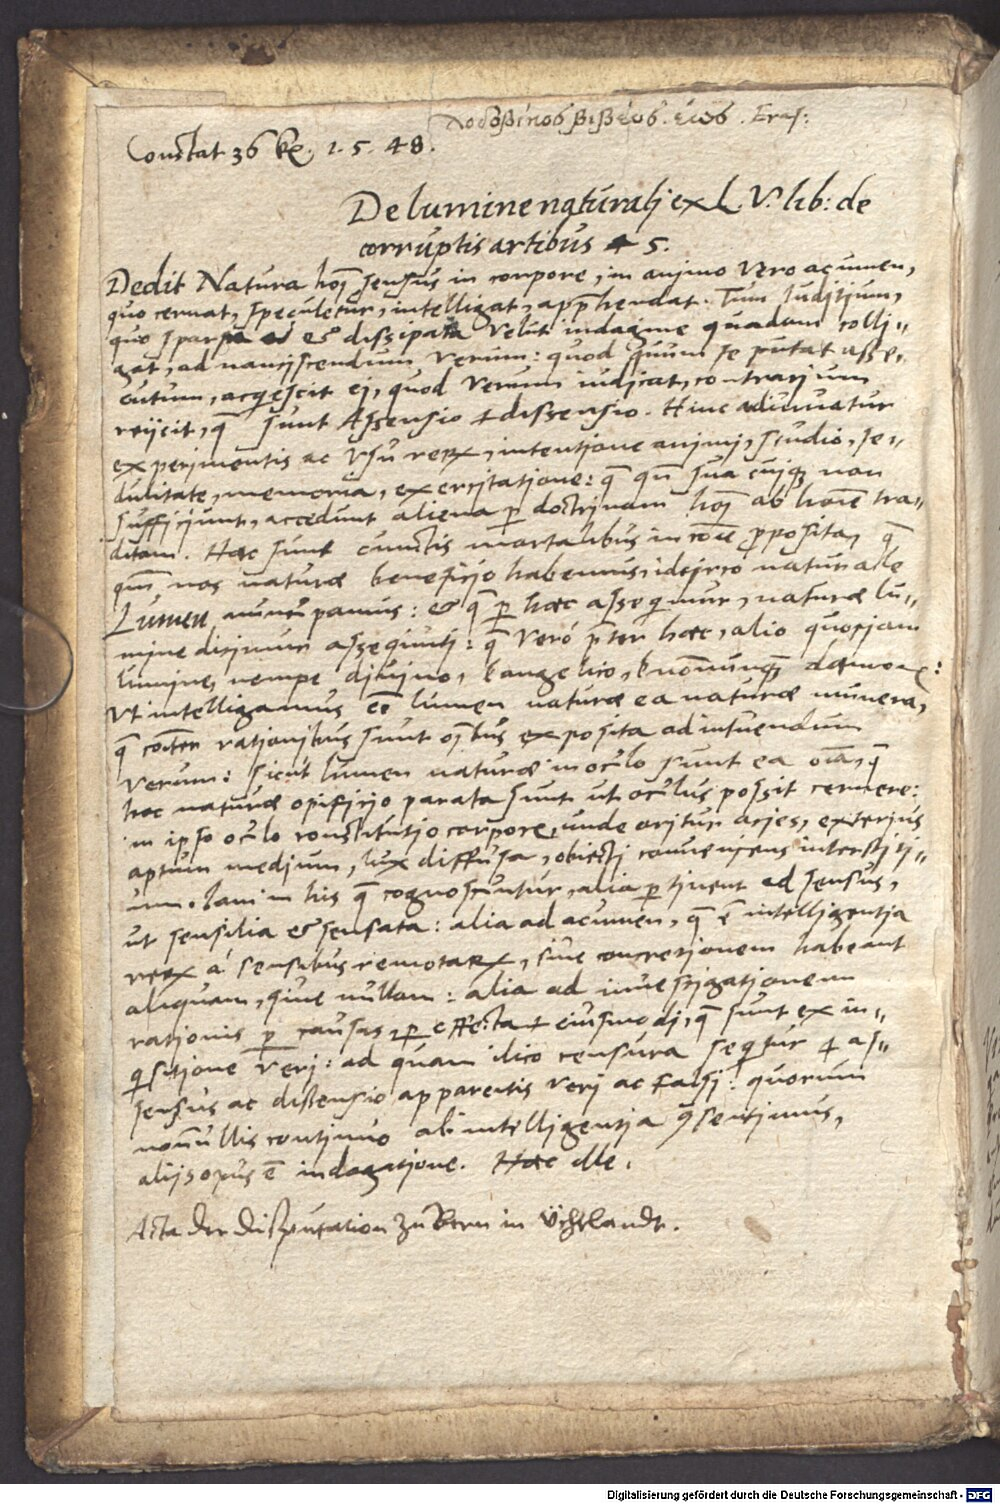 Erasm:
Constat 36 kr. 1. 5. 48.
De lumine naturalj ex L. V. lib: de
corruptis artibus 4 5.
Dedit Natura hoj sensus in corpore, in animo vero acumen,
quo cernat, speculetur, intelligat, apprhendat. Tum Iuditium,
quo sparsa et dissipata velut indagine quadam colli-
gat, ad nanciscendum verum: quod quum se putat asse-
cutum, acqescit ej, quod verum iudicat, contrarium
reijcit, q sunt Assensio + dissensio. Hinc adiuuatur
experimentis ac vsu rerx, intentione animj, studio, se-
dulitate, memoria, exercitatione: q qn sua cuiq non
sufficiunt, accedunt aliena p doctrinam hoj ab hoie tra-
ditam. Haec sunt cunctis mortalibus in coe proposita, q
qm nos naturae beneficio habemus, idcirco naturale
Lumen nuncupamus: & q p haec asseqimur, naturae lu-
mine dicimur assequtj: q vero pter haec, alio quopiam
lumine, nempe diuino, l angelico, l nonnunq daemone:
Vt intelligamus ee lumen naturae ea naturae munera,
q coiter rationibus sunt oibus exposita ad intuendum
verum: sicut lumen naturae in oculo sunt ea oia, q
hoc naturae opificio parata sunt ut oculus possit cernere:
in ipso oculo constitutio corpore, unde oritur acies, exterius
aptum medium, lux diffusa, obiectj conueniens interstiti-
um. Iam in his q cognoscuntur, alia ptinent ad sensus,
ut sensilia & sensata: alia ad acumen, q e intelligentia
rerx a sensibus remotarx, siue concretionem habeant
aliquam, siue nullam: alia ad inuestigationem
rationis p causas, p effecta + eiusmodj, q sunt ex in-
qisitione verj: ad quam ilico censura seqitur + as-
sensus ac dissensio apparentis verj ac falsj: quorum
nonnullis continuo ab intelligentia qsentimus,
alijs opus e indagatione. Haec ille.
Acta der Disputation zu Bern in Üchtlandt.
Digitalisierung gefördert durch die Deutsche Forschungsgemeinschaft - DFG